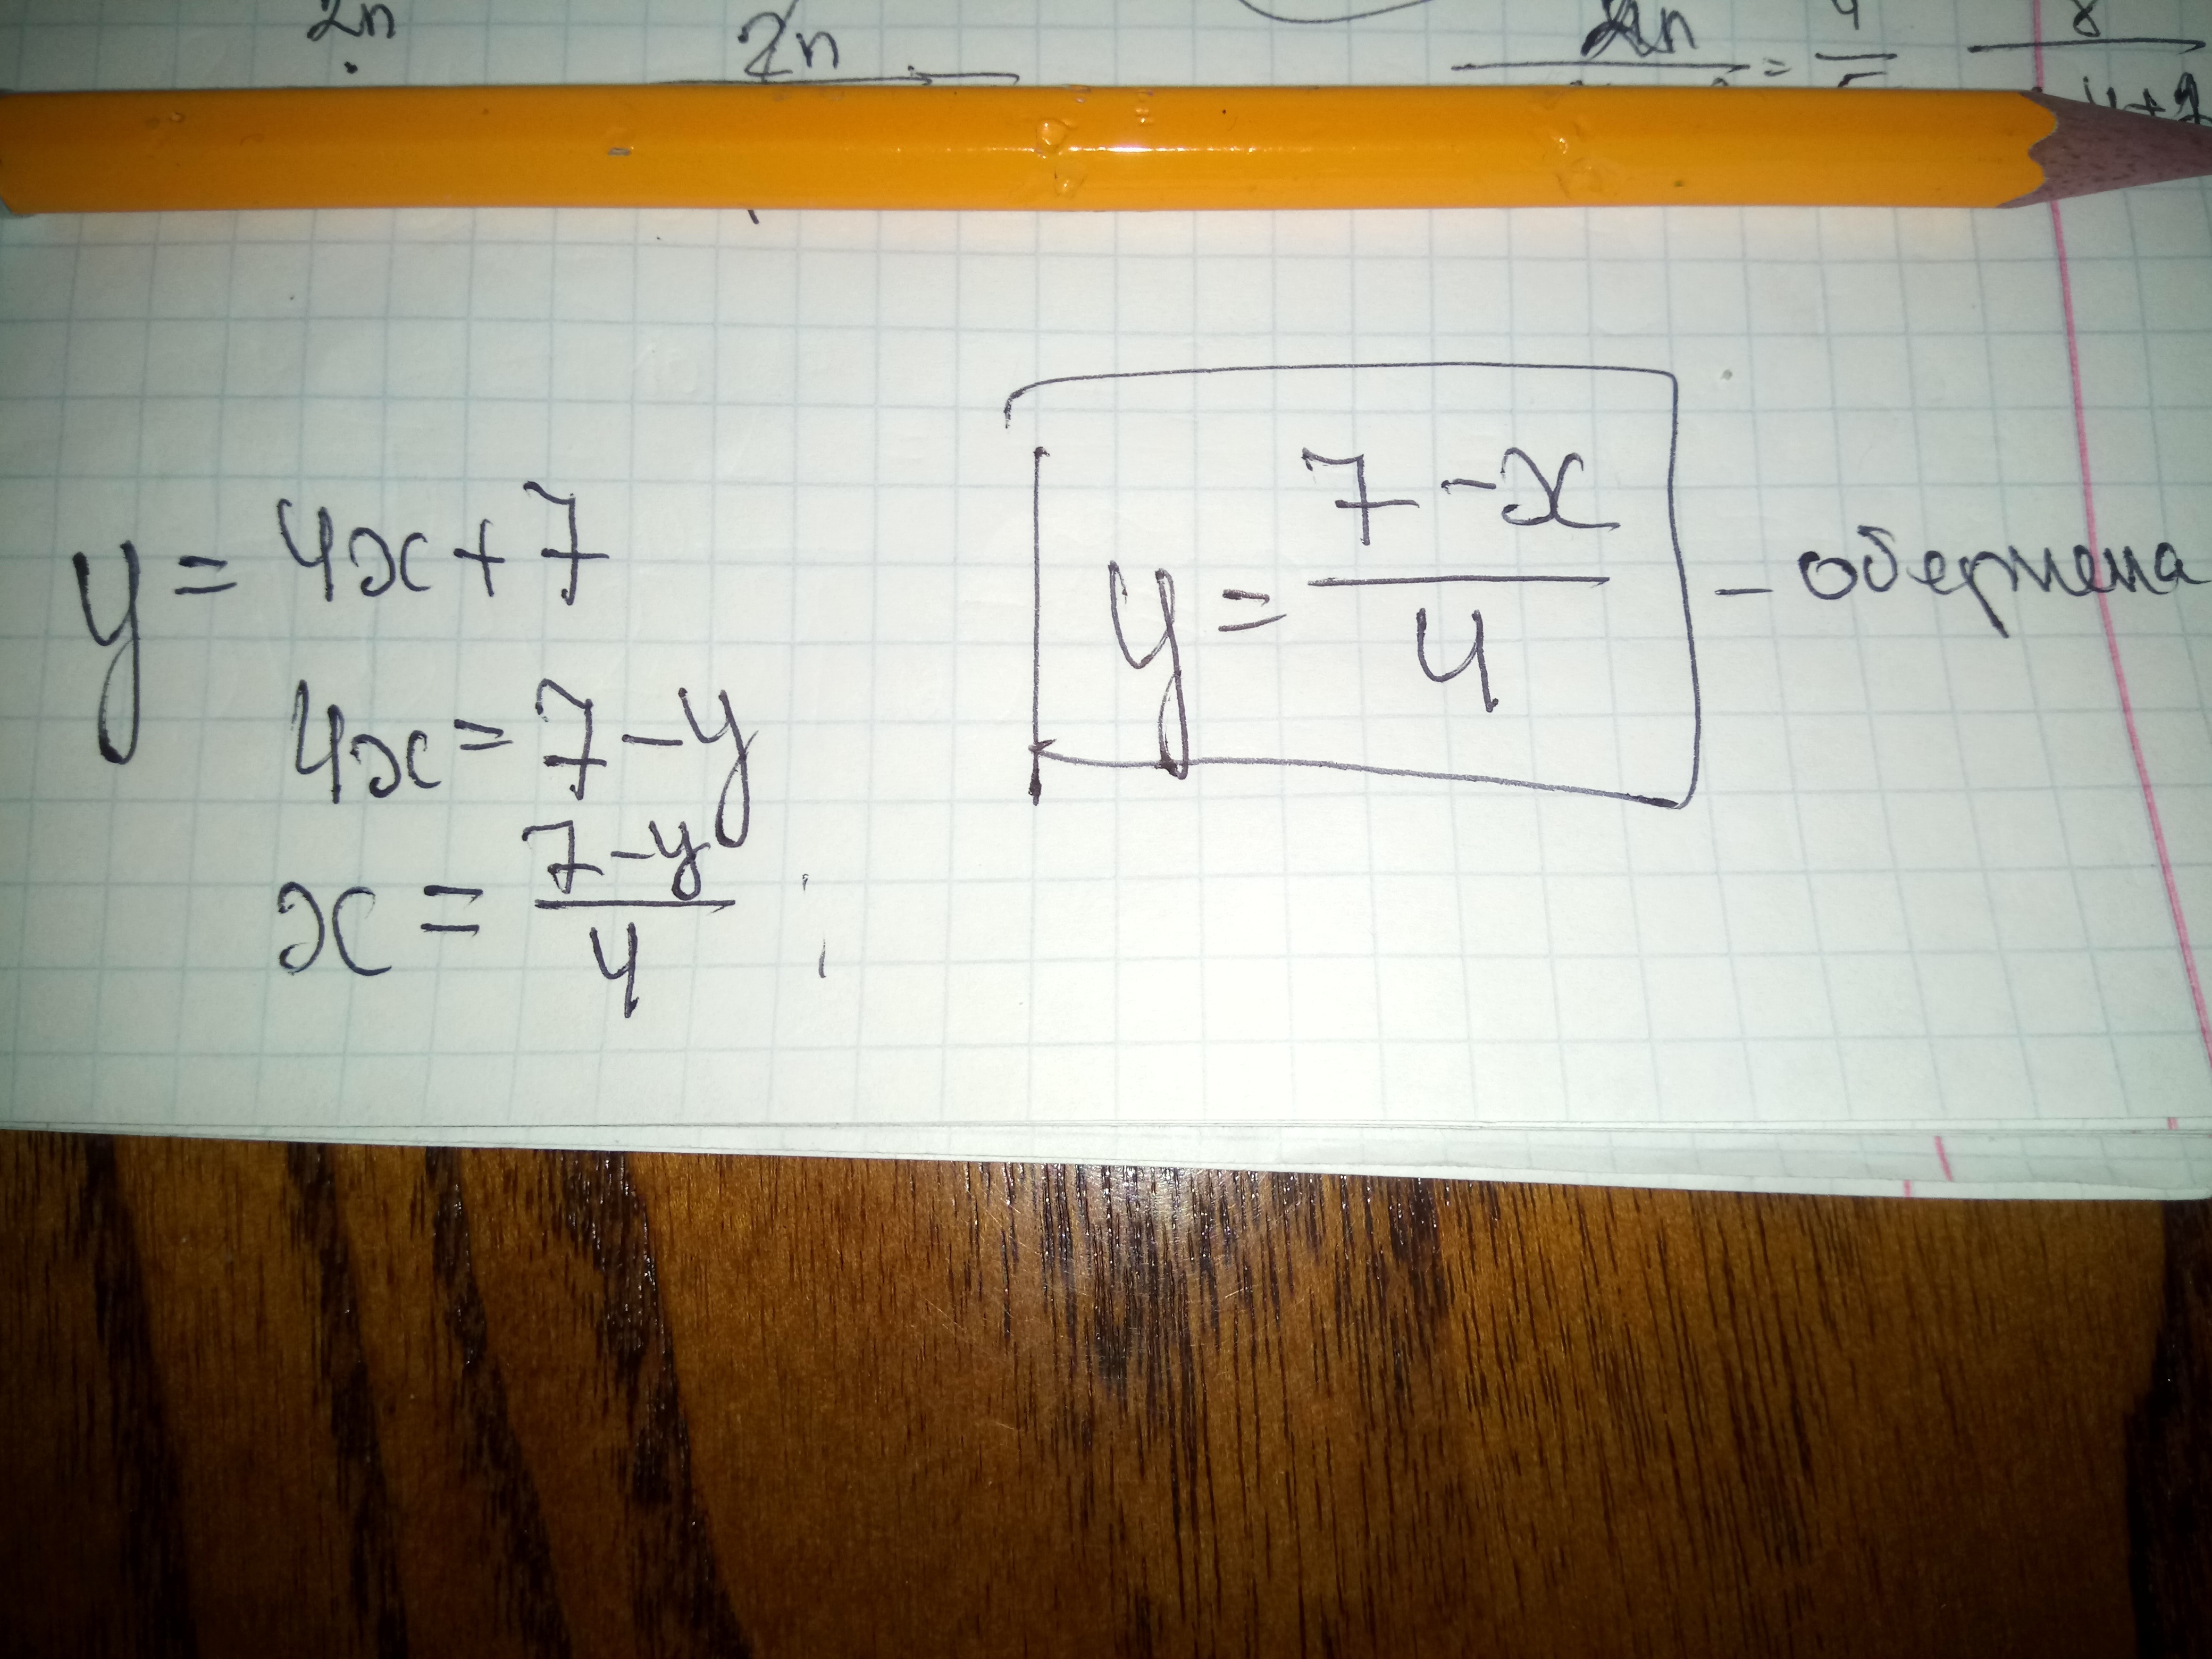 2n 2n 2n = 4/5 8
y = 4x + 7
4x = 7 - y
x = (7 - y)/4 ;
y = (7 - x)/4 - обернена